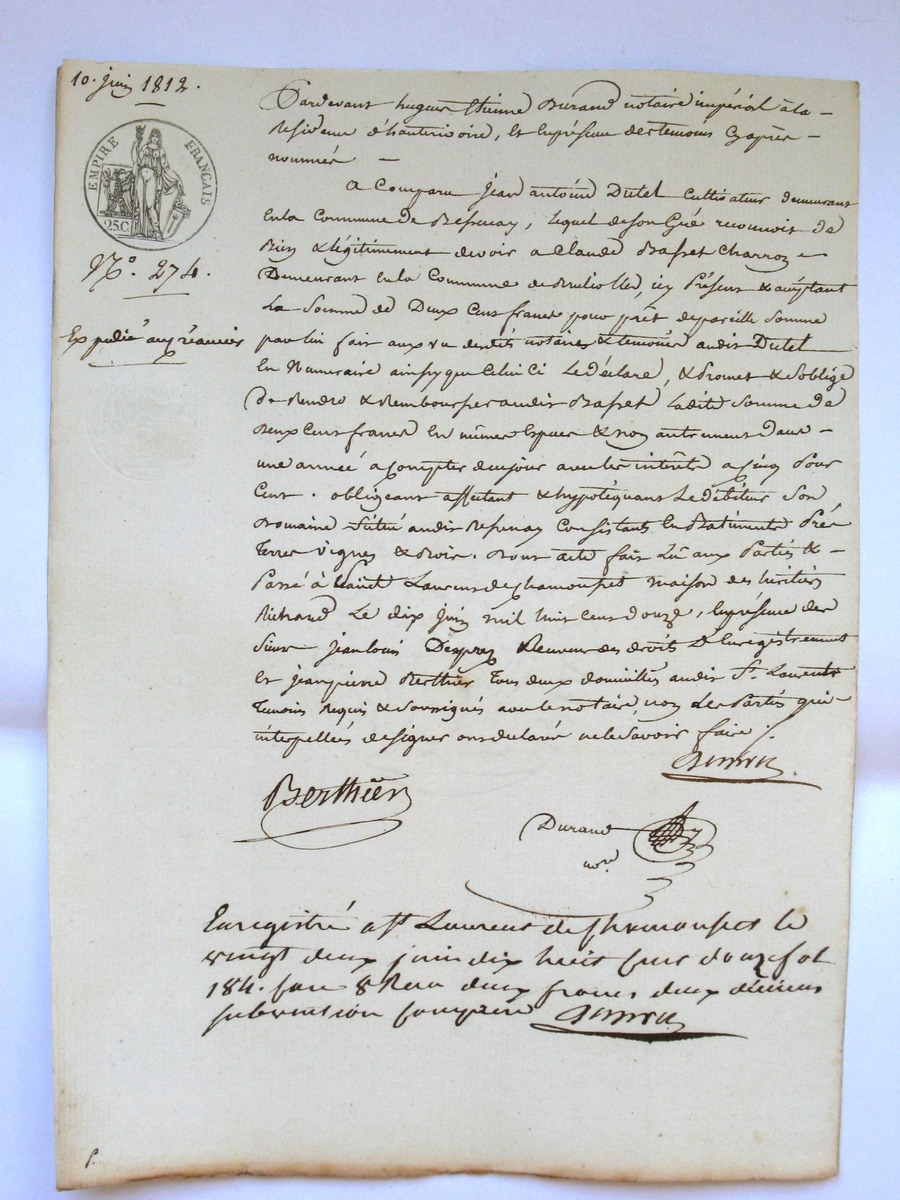 10. juin 1812.
EMPIRE FRANÇAIS
25 C.
N.° 274.
Expedié au créancier
Pardevant hugues Etienne Durand notaire impérial à la
Residence d'hauterivoire, et en présence des temoins cy après
nommés
A Comparu jean antoine Dutel Cultivateur demeurant
En la Commune de Bessenay, lequel de son Gré reconnoit de
Bien & légitimement devoir a Claude Basset Charron
Demeurant En la Commune de Brulliolles, icy Présent & acceptant
La Somme de Deux Cent francs pour prêt de pareille Somme
par lui fait aux vu desdits notaires & temoins audit Dutel
En Numeraire ainsy que Celui Ci Le déclare, & Promet & S'oblige
De Rendre & Rembourser audit Basset Ladite Somme de
Deux Cent francs En mêmes Espèces & non autrement dans
une année a Compter du jour avec les intérêts a Cinq Pour
Cent. obligeant affectant & hypotéquant Le débiteur Son
Domaine Situé audit Bessenay Consistants En Batiments Prés
Terres Vignes & Bois. Dont acte fait Lû aux Parties &
Passé à Saint Laurent de Chamousset maison des héritiers
Richard Le dix juin mil huit cent douze, En présence des
Sieurs jean louis Desprez Receveur des droits D'Enregistrement
Et jean pierre Berthier Tous deux domiciliés audit St. Laurent
Temoins Requis & Soussignés avec le notaire, non Les Parties qui
interpellées de signer ont déclaré ne le Savoir faire /.
Berthier
Durand
no.re
Enregistré a St Laurent de Chamousset le
vingt deux juin dix huit cent douze fol
184. case 8 Reçu deux francs deux décimes
subvention comprise